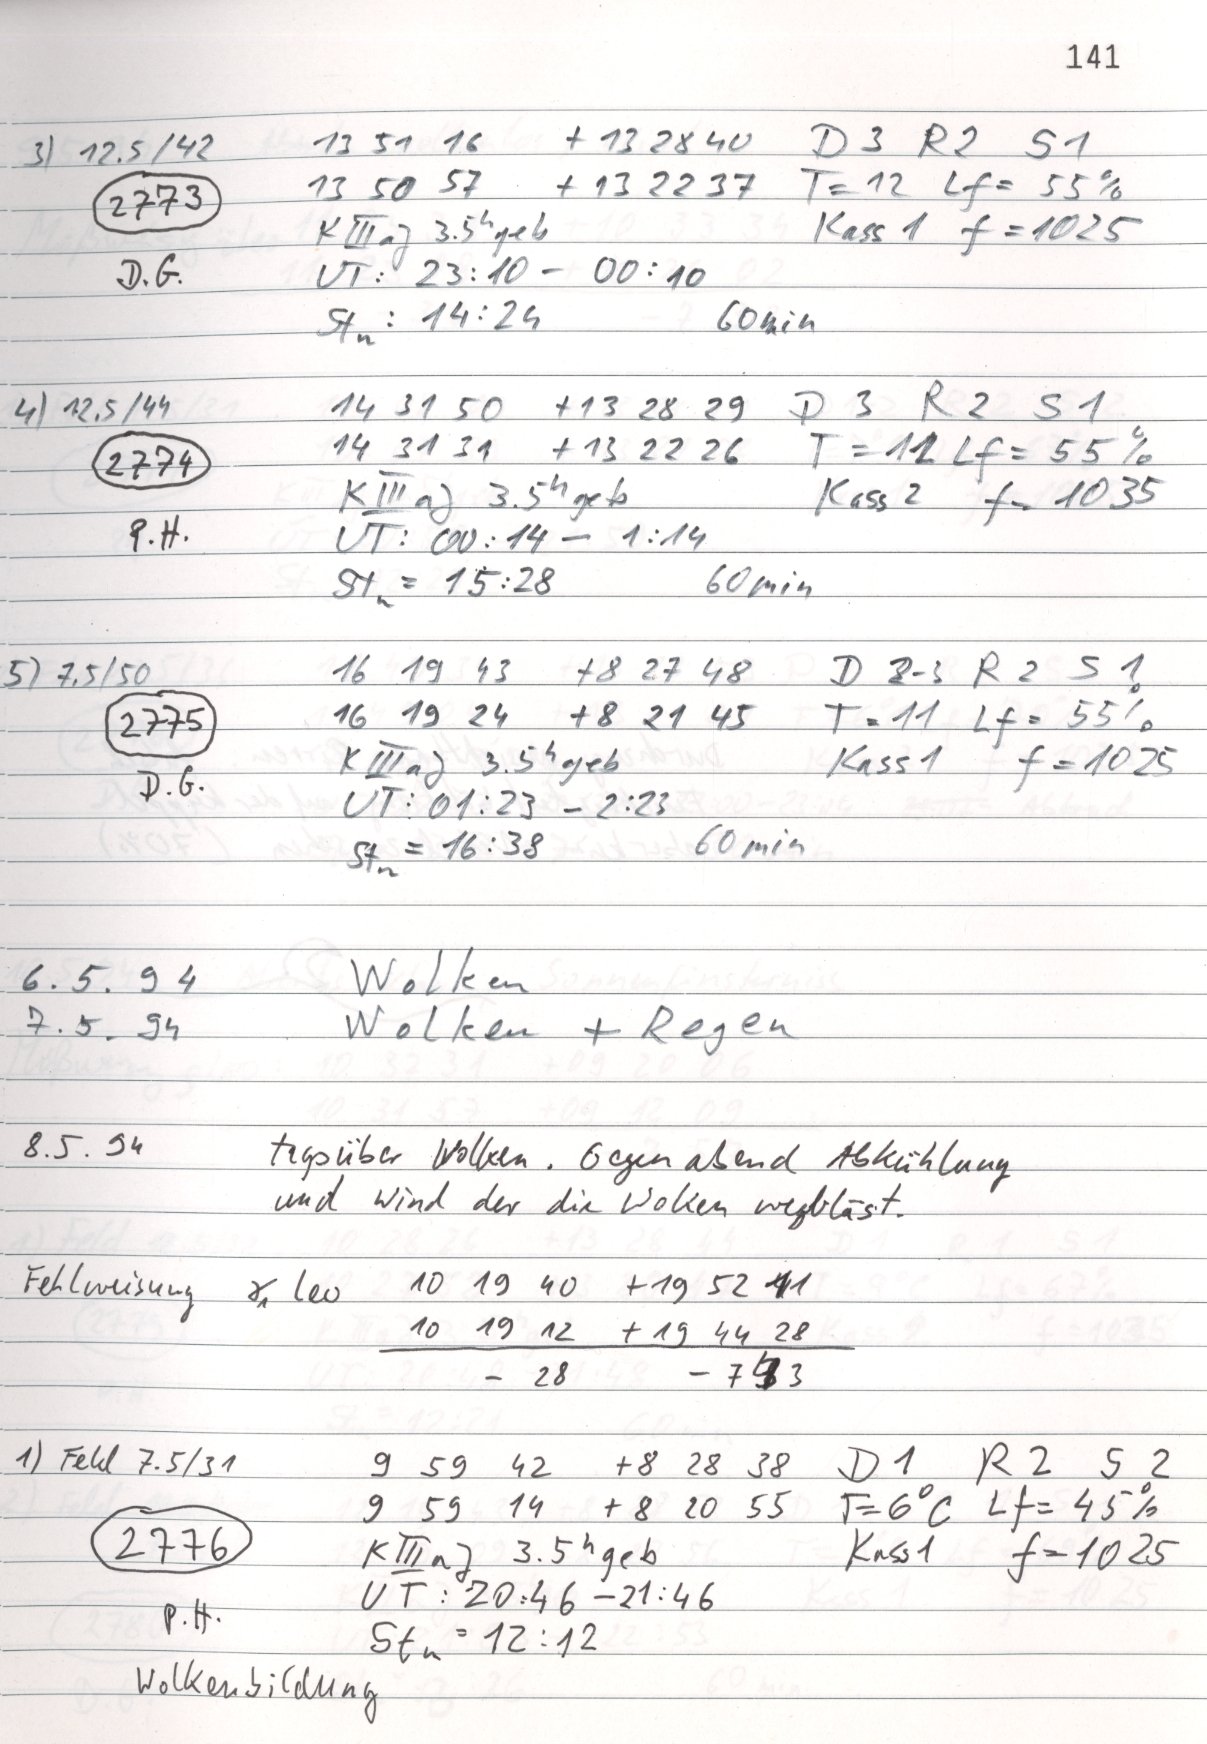 141
3) 12.5/42 13 51 16 +13 28 40 D 3 R2 S1
2773 13 50 57 +13 22 37 T=12 Lf= 55%
K III aJ 3.5h geb Kass 1 f=1025
D.G. UT: 23:10 - 00:10
Stn: 14:24 60min
4) 12.5/44 14 31 50 +13 28 29 D 3 R2 S1
2774 14 31 31 +13 22 26 T=11 Lf= 55%
K III aJ 3.5h geb Kass 2 f= 1035
P.H. UT: 00:14 - 1:14
Stn= 15:28 60min
5) 7.5/50 16 19 43 +8 27 48 D 2-3 R2 S1
2775 16 19 24 +8 21 45 T=11 Lf= 55%
K III aJ 3.5h geb Kass 1 f=1025
D.G. UT: 01:23 - 2:23
Stn= 16:38 60min
6.5.94 Wolken
7.5.94 Wolken + Regen
8.5.94 tagsüber Wolken. Gegen abend Abkühlung
und Wind der die Wolken wegbläst.
Fehlweisung γ1 leo 10 19 40 +19 52 11
10 19 12 +19 44 28
- 28 - 7 43
1) Feld 7.5/31 9 59 42 +8 28 38 D1 R2 S2
2776 9 59 14 +8 20 55 T=6°C Lf= 45%
K III aJ 3.5h geb Kass1 f=1025
P.H. UT: 20:46 - 21:46
Stn= 12:12
Wolkenbildung